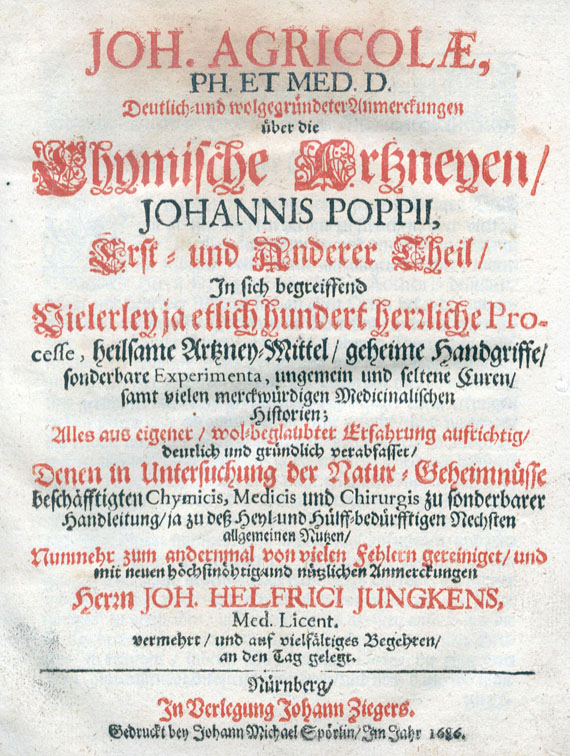 JOH. AGRICOLÆ,
PH. ET MED. D.
Deutlich- und wolgegründeter Anmerckungen
über die
Chymische Artzneyen/
JOHANNIS POPPII,
Erst- und Anderer Theil/
In sich begreiffend
Vielerley ja etlich hundert herrliche Pro-
cesse, heilsame Artzney-Mittel/ geheime Handgriffe/
sonderbare Experimenta, ungemein und seltene Curen/
samt vielen merckwürdigen Medicinalischen
Historien;
Alles aus eigener/ wol-beglaubter Erfahrung aufrichtig/
deutlich und gründlich verabfasset/
Denen in Untersuchung der Natur-Geheimnüsse
beschäfftigten Chymicis, Medicis und Chirurgis zu sonderbarer
Handleitung/ ja zu deß Heyl- und Hülff-bedürfftigen Nechsten
allgemeinen Nutzen/
Nunmehr zum andernmal von vielen Fehlern gereiniget/ und
mit neuen höchstnöhtig- und nützlichen Anmerckungen
Herrn JOH. HELFRICI JUNGKENS,
Med. Licent.
vermehrt/ und auf vielfältiges Begehren/
an den Tag gelegt.
Nürnberg/
In Verlegung Johann Ziegers.
Gedruckt bey Johann Michael Spörlin/ Im Jahr 1686.